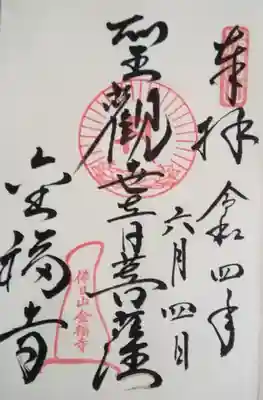 奉拝
令和四年
六月四日
聖觀世音菩薩
金福寺
佛日山金福寺